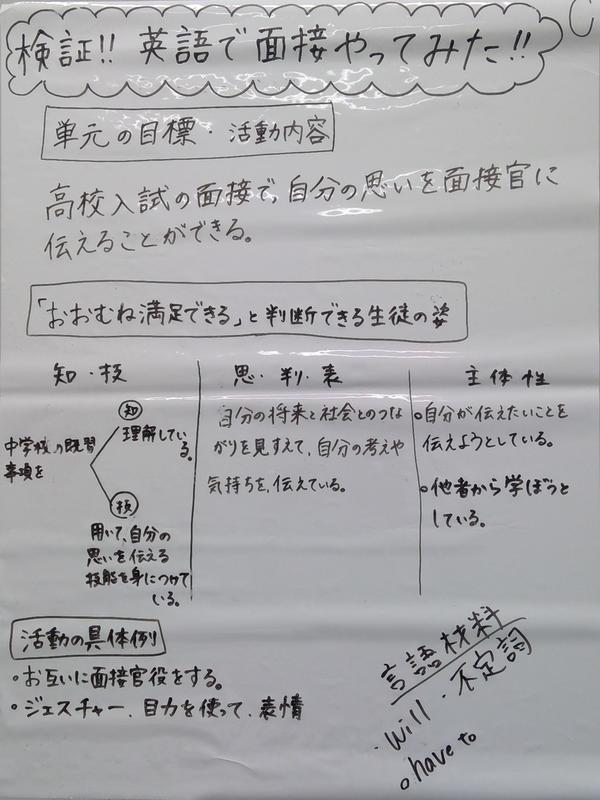 検証!! 英語で面接やってみた!!
単元の目標・活動内容
高校入試の面接で、自分の思いを面接官に
伝えることができる。
「おおむね満足できる」と判断できる生徒の姿
知・技
中学校の既習
事項を
知
理解している。
技
用いて、自分の
思いを伝える
技能を身につけて
いる。
思・判・表
自分の将来と社会とのつな
がりを見すえて、自分の考えや
気持ちを、伝えている。
主体性
○自分が伝えたいことを
伝えようとしている。
○他者から学ぼうと
している。
活動の具体例
○お互いに面接官役をする。
○ジェスチャー、目力を使って、表情
言語材料
・will・不定詞
○have to